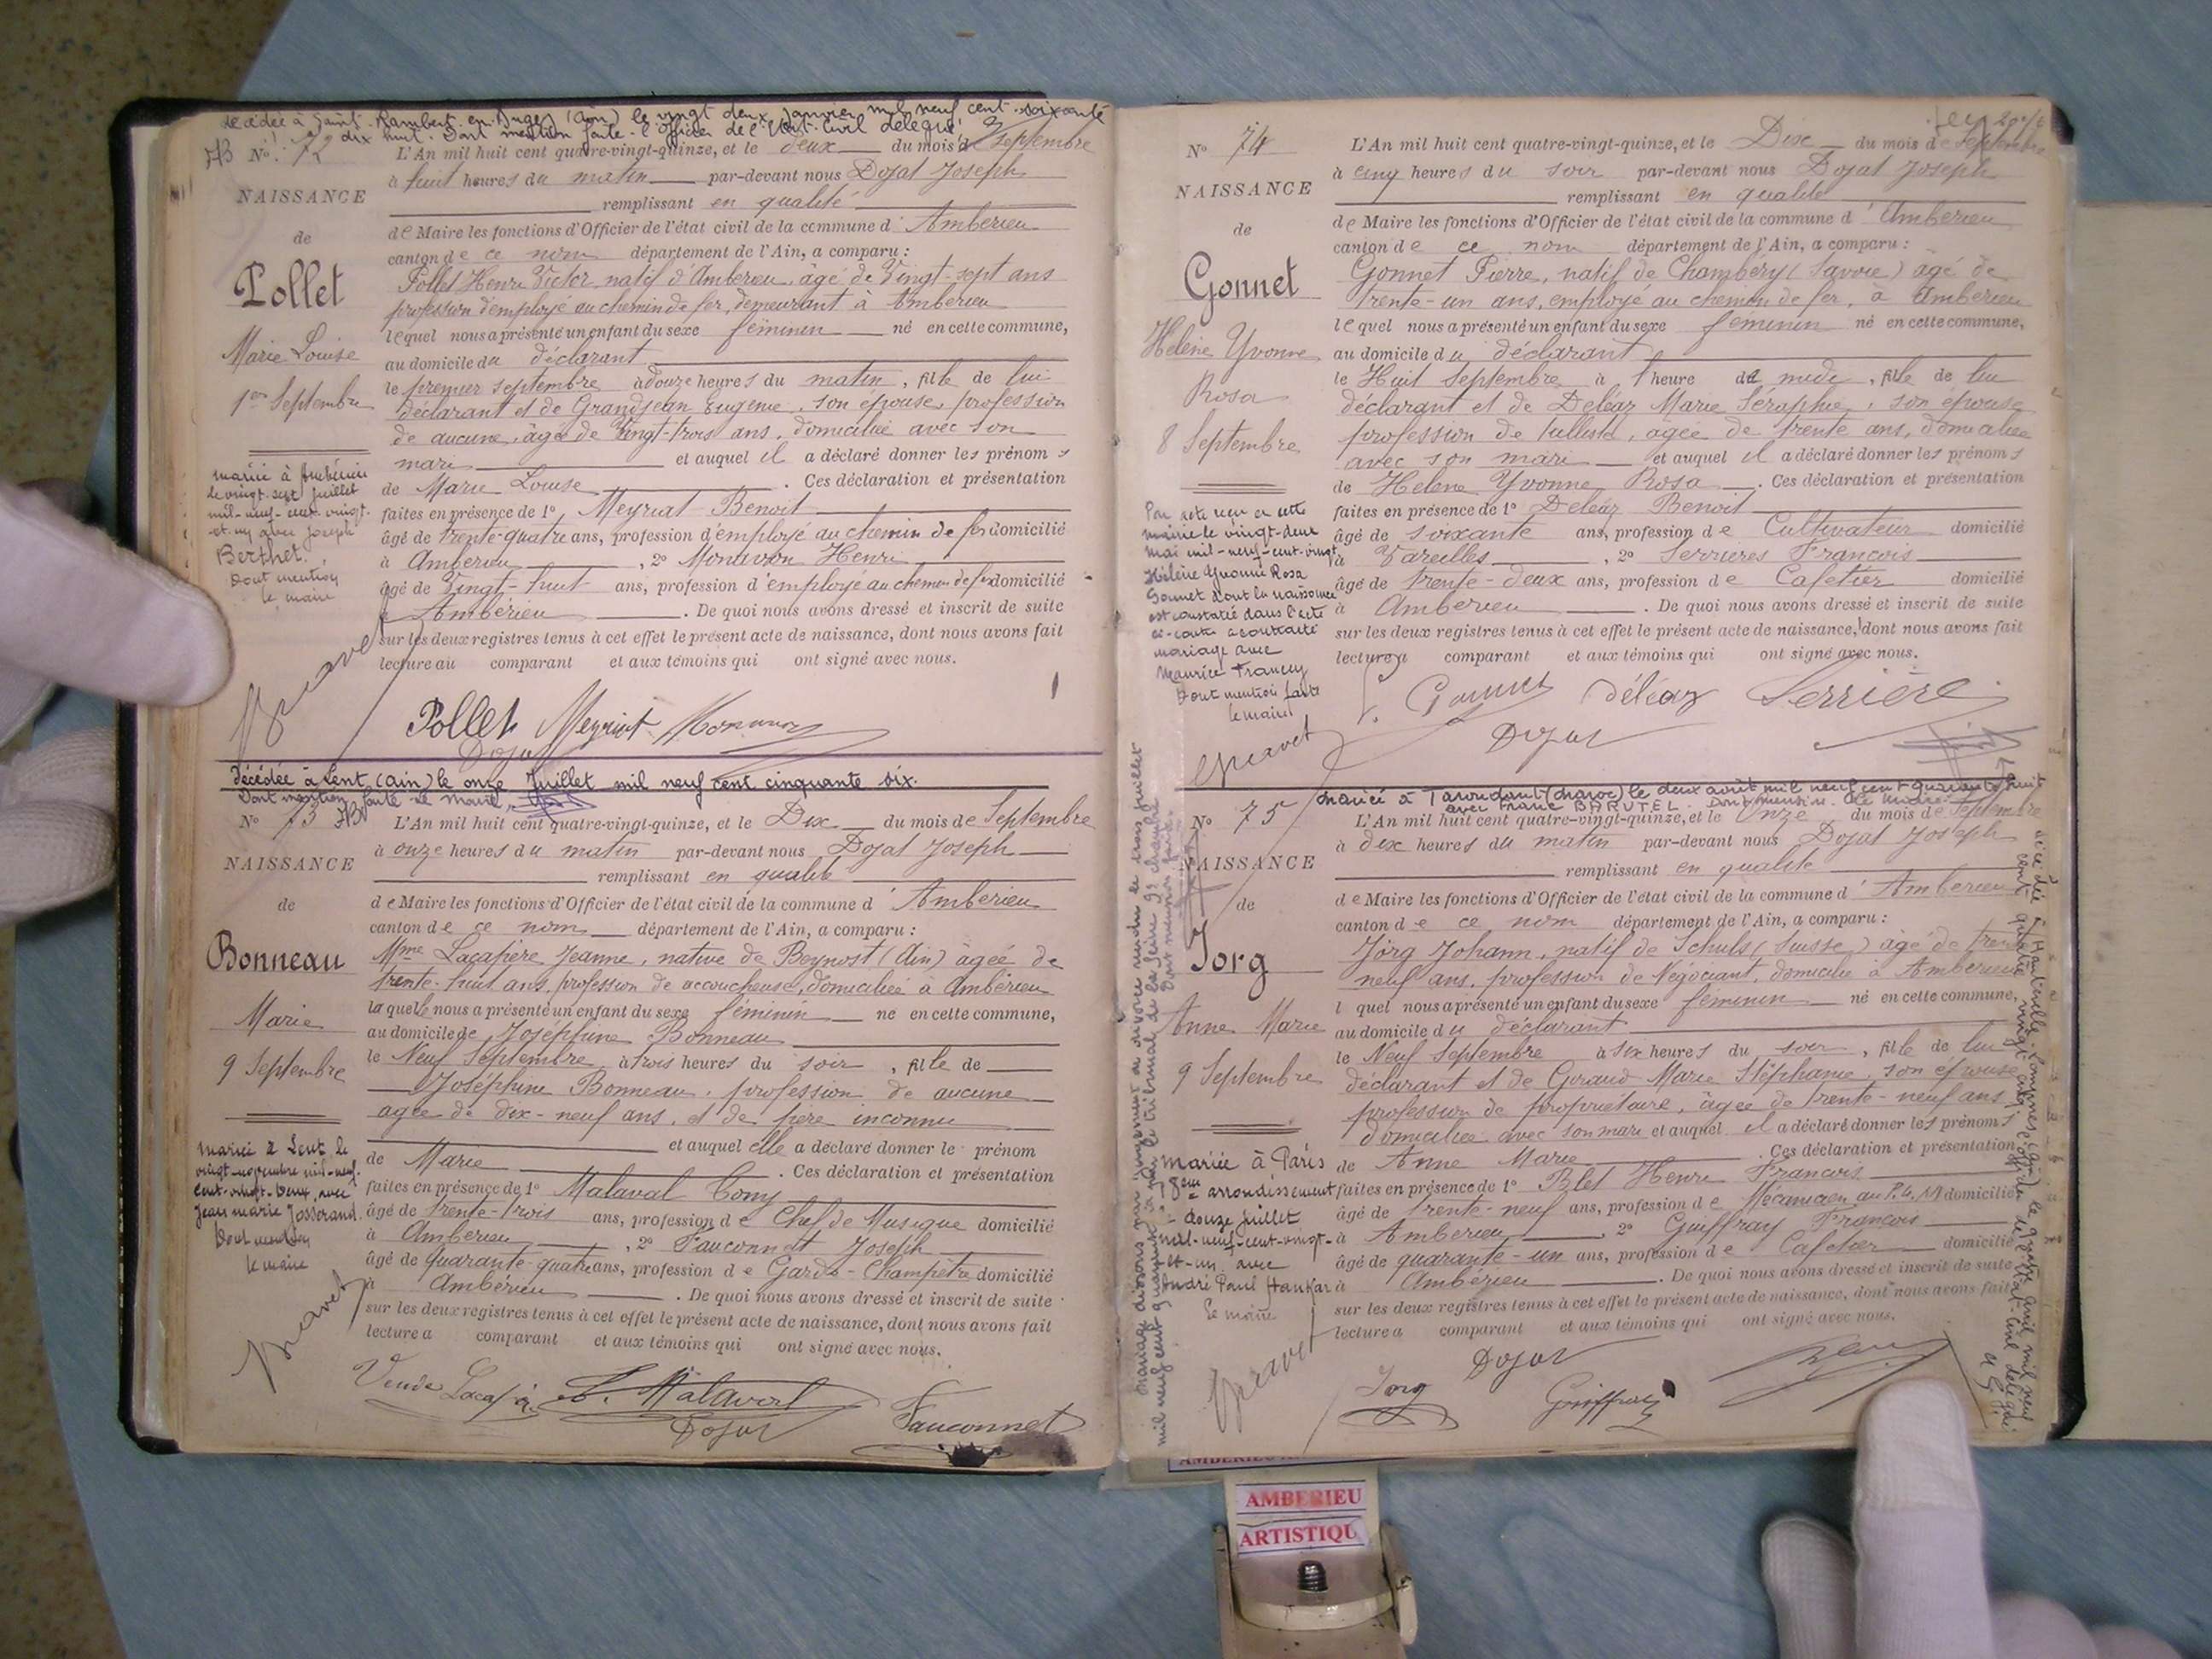 décédée à Saint-Rambert-en-Bugey (Ain) le vingt deux janvier mil neuf cent soixante
dix huit. Dont mention faite. l'Officier de l'Etat-Civil délégué,
N° 72
L'An mil huit cent quatre-vingt-quinze, et le deux du mois de Septembre
à huit heures du matin par-devant nous Dojat Joseph
NAISSANCE
remplissant en qualité
de
de Maire les fonctions d'Officier de l'état civil de la commune d'Ambérieu
canton de ce nom département de l'Ain, a comparu :
Pollet
Pollet Henri Victor, natif d'Ambérieu, âgé de Vingt-sept ans
profession d'employé au chemin de fer, demeurant à Ambérieu
lequel nous a présenté un enfant du sexe féminin né en cette commune,
Marie Louise
au domicile du déclarant
1er Septembre
le premier septembre à douze heures du matin, fille de lui
déclarant et de Grandjean Eugénie, son épouse, profession
de aucune, âgée de Vingt-trois ans, domiciliée avec son
mari et auquel il a déclaré donner les prénoms
de Marie Louise. Ces déclaration et présentation
faites en présence de 1° Meyriat Benoit
âgé de trente-quatre ans, profession d'employé au chemin de fer domicilié
à Ambérieu, 2° Monavon Henri
âgé de Vingt-huit ans, profession d'employé au chemin de fer domicilié
à Ambérieu. De quoi nous avons dressé et inscrit de suite
sur les deux registres tenus à cet effet le présent acte de naissance, dont nous avons fait
lecture au comparant et aux témoins qui ont signé avec nous.
mariée à Ambérieu
le vingt-sept juillet
mil-neuf-cent-vingt-
et-un avec Joseph
Berthet.
Dont mention
le maire
Pollet Meyriat Monavon
Dojat
décédée à Lent (Ain) le onze Juillet mil neuf cent cinquante six.
Dont mention faite le Maire,
N° 73
L'An mil huit cent quatre-vingt-quinze, et le Dix du mois de Septembre
à onze heures du matin par-devant nous Dojat Joseph
NAISSANCE
remplissant en qualité
de
de Maire les fonctions d'Officier de l'état civil de la commune d'Ambérieu
canton de ce nom département de l'Ain, a comparu :
Bonneau
Mme Lacapère Jeanne, native de Beynost (Ain) âgée de
trente-huit ans, profession de accoucheuse, domiciliée à Ambérieu
laquelle nous a présenté un enfant du sexe féminin né en cette commune,
Marie
au domicile de Joséphine Bonneau
9 Septembre
le Neuf Septembre à trois heures du soir, fille de
Joséphine Bonneau, profession de aucune
âgée de dix-neuf ans, et de père inconnu
et auquel elle a déclaré donner le prénom
de Marie. Ces déclaration et présentation
faites en présence de 1° Malaval Tony
âgé de trente-trois ans, profession de Chef de Musique domicilié
à Ambérieu, 2° Fauconnet Joseph
âgé de quarante-quatre ans, profession de Garde-Champêtre domicilié
à Ambérieu. De quoi nous avons dressé et inscrit de suite
sur les deux registres tenus à cet effet le présent acte de naissance, dont nous avons fait
lecture a comparant et aux témoins qui ont signé avec nous.
mariée à Lent le
vingt-novembre mil-neuf-
cent-vingt-deux, avec
Jean Marie Josserand.
Dont mention
le maire
Malaval
Dojat
Fauconnet
N° 74
L'An mil huit cent quatre-vingt-quinze, et le Dix du mois de Septembre
à cinq heures du soir par-devant nous Dojat Joseph
NAISSANCE
remplissant en qualité
de
de Maire les fonctions d'Officier de l'état civil de la commune d'Ambérieu
canton de ce nom département de l'Ain, a comparu :
Gonnet
Gonnet Pierre, natif de Chambéry (Savoie) âgé de
trente-un ans, employé au chemin de fer, à Ambérieu
lequel nous a présenté un enfant du sexe féminin né en cette commune,
Hélène Yvonne
Rosa
au domicile du déclarant
8 Septembre
le Huit Septembre à 1 heure de midi, fille de lui
déclarant et de Deléaz Marie Séraphie, son épouse
profession de tulliste, âgée de trente ans, domiciliée
avec son mari et auquel il a déclaré donner les prénoms
de Hélène Yvonne Rosa. Ces déclaration et présentation
faites en présence de 1° Deléaz Benoit
âgé de soixante ans, profession de Cultivateur domicilié
à Vareilles, 2° Serrières François
âgé de trente-deux ans, profession de Cafetier domicilié
à Ambérieu. De quoi nous avons dressé et inscrit de suite
sur les deux registres tenus à cet effet le présent acte de naissance, dont nous avons fait
lecture a comparant et aux témoins qui ont signé avec nous.
Par acte reçu en cette
mairie le vingt-deux
mai mil-neuf-cent-vingt,
Hélène Yvonne Rosa
Gonnet dont la naissance
est constatée dans l'acte
ci-contre a contracté
mariage avec
Maurice Francey
Dont mention faite
le maire
Gonnet Déléaz Serrière
Dojat
mariée à Taroudant (Maroc) le deux août mil neuf cent quarante huit
avec Franc BARUTEL. Dont mention. Le Maire
N° 75
L'An mil huit cent quatre-vingt-quinze, et le Onze du mois de Septembre
à dix heures du matin par-devant nous Dojat Joseph
NAISSANCE
remplissant en qualité
de
de Maire les fonctions d'Officier de l'état civil de la commune d'Ambérieu
canton de ce nom département de l'Ain, a comparu :
Jorg
Jörg Johann, natif de Schuls (Suisse) âgé de trente
neuf ans, profession de Négociant, domicilié à Ambérieu
l quel nous a présenté un enfant du sexe féminin né en cette commune,
Anne Marie
au domicile du déclarant
9 Septembre
le Neuf Septembre à six heures du soir, fille de lui
déclarant et de Giraud Marie Stéphanie, son épouse
profession de propriétaire, âgée de trente-neuf ans,
domiciliée avec son mari et auquel il a déclaré donner les prénoms
de Anne Marie. Ces déclaration et présentation
faites en présence de 1° Blet Henri François
âgé de trente-neuf ans, profession de Mécanicien au P.L.M domicilié
à Ambérieu 2° Guiffray François
âgé de quarante-un ans, profession de Cafetier domicilié
à Ambérieu. De quoi nous avons dressé et inscrit de suite
sur les deux registres tenus à cet effet le présent acte de naissance, dont nous avons fait
lecture a comparant et aux témoins qui ont signé avec nous.
mariée à Paris
18eme arrondissement
douze juillet
mil-neuf-cent-vingt-
et-un avec
André Paul Hankar
le maire
Mariage dissous par jugement de divorce rendu le trois juillet
mil neuf cent quarante
Jorg
Dojat
Guiffray
AMBERIEU
ARTISTIQU